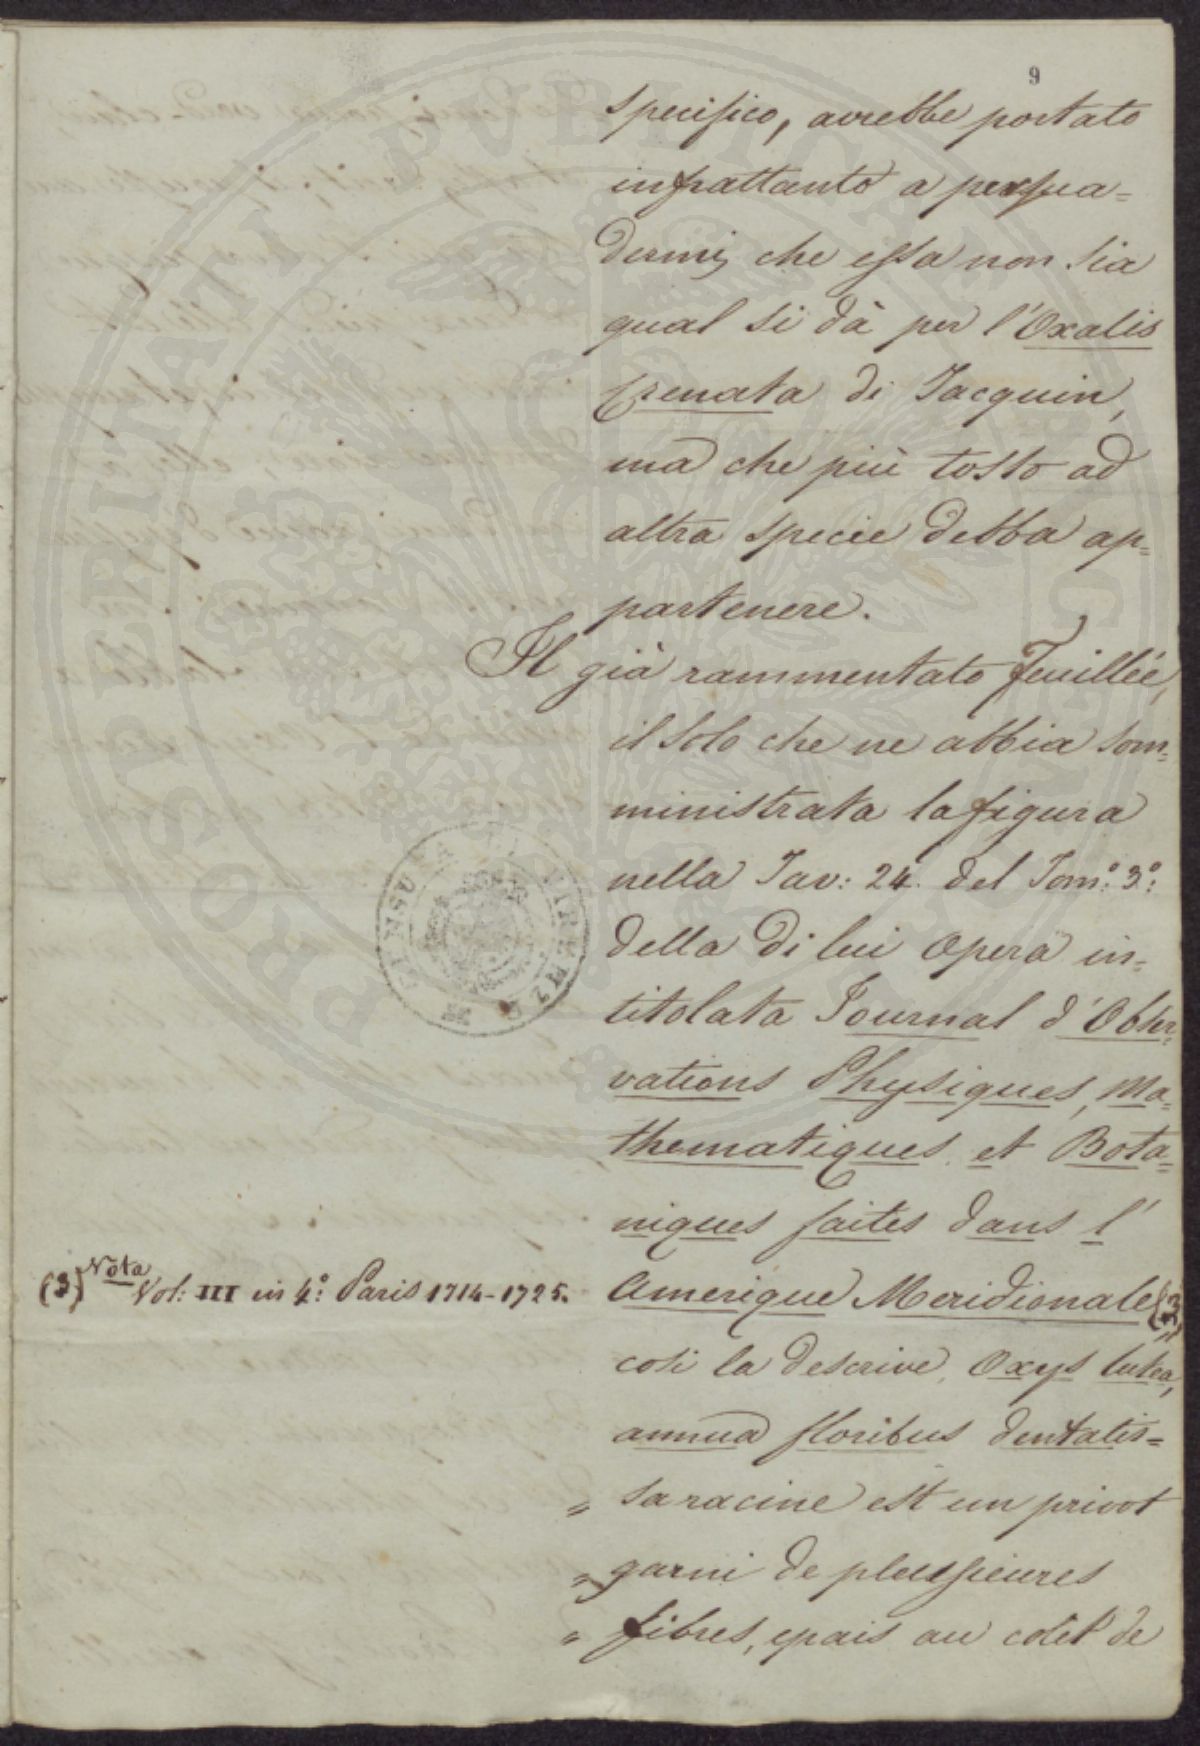 9
specifico, avrebbe portato
infrattanto a persua=
dermi, che essa non sia
qual si dà per l'Oxalis
Crenata di Jacquin,
ma che più tosto ad
altra specie debba ap=
partenere.
Il già rammentato Feuillée,
il solo che ne abbia som=
ministrata la figura
nella Tav: 24. del Tom.º 3º:
della di lui opera in=
titolata Journal d'Obser=
vations Physiques, Ma=
thematiques, et Bota=
niques faites dans l'
Amerique Meridionale (3)
così la descrive, Oxys lutea,
annua floribus dentatis=
„ sa racine est un privot
„ garni de plussieures
„ fibres, epais au colet de
(3) Nota Vol: III in 4º: Paris 1714-1725.
PROSPERITATI PVBLICAE